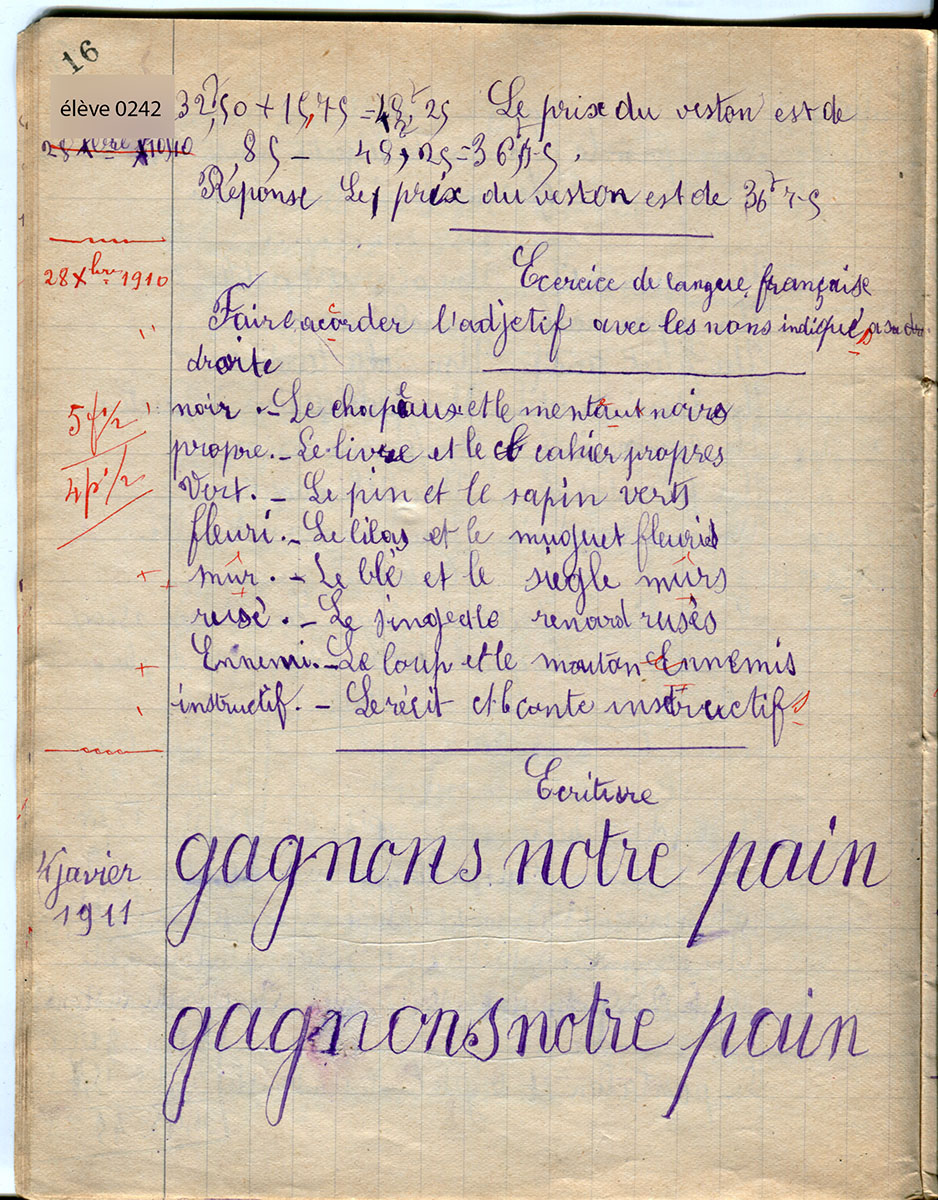 16
élève 0242
32,50 + 15,75 = 48,25 Le prix du veston est de
85 - 48,25 = 36,75.
Réponse Le prix du veston est de 36f75
28 Xbre 1910
Ecercice de langue française
Faire acorder l'adjetif avec les nons indiqué a sa
droite
5f 1/2
4p 1/2
noir .- Le chapeau et le menteaut noirs
propre.- Le livre et le cahier propres
Vert. - Le pin et le sapin verts
fleuri.- Le lilas et le muguet fleuris
mûr. - Le blé et le siègle mûrs
rusé. - Le singe et le renard rusés
Ennemi.- Le loup et le mouton Ennemis
instructif. - Le récit et le conte instructifs
Ecriture
4 javier
1911
gagnons notre pain
gagnons notre pain